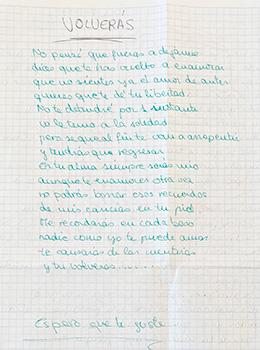 VOLVERÁS
No pensé que fueras a dejarme
dices que te has vuelto a enamorar
que no sientes ya el amor de antes
quieres que te dé tu libertad.
No te detendré por 1 instante
yo le temo a la soledad
pero se que al fin te vas a arrepentir
y tendrás que regresar
En tu alma siempre serás mío
aunque te enamores otra vez
no podrás borrar esos recuerdos
de mis caricias en tu piel.
Me recordarás en cada beso
nadie como yo te puede amar
te cansarás de las mentiras
y tu volverás......
Espero que te guste